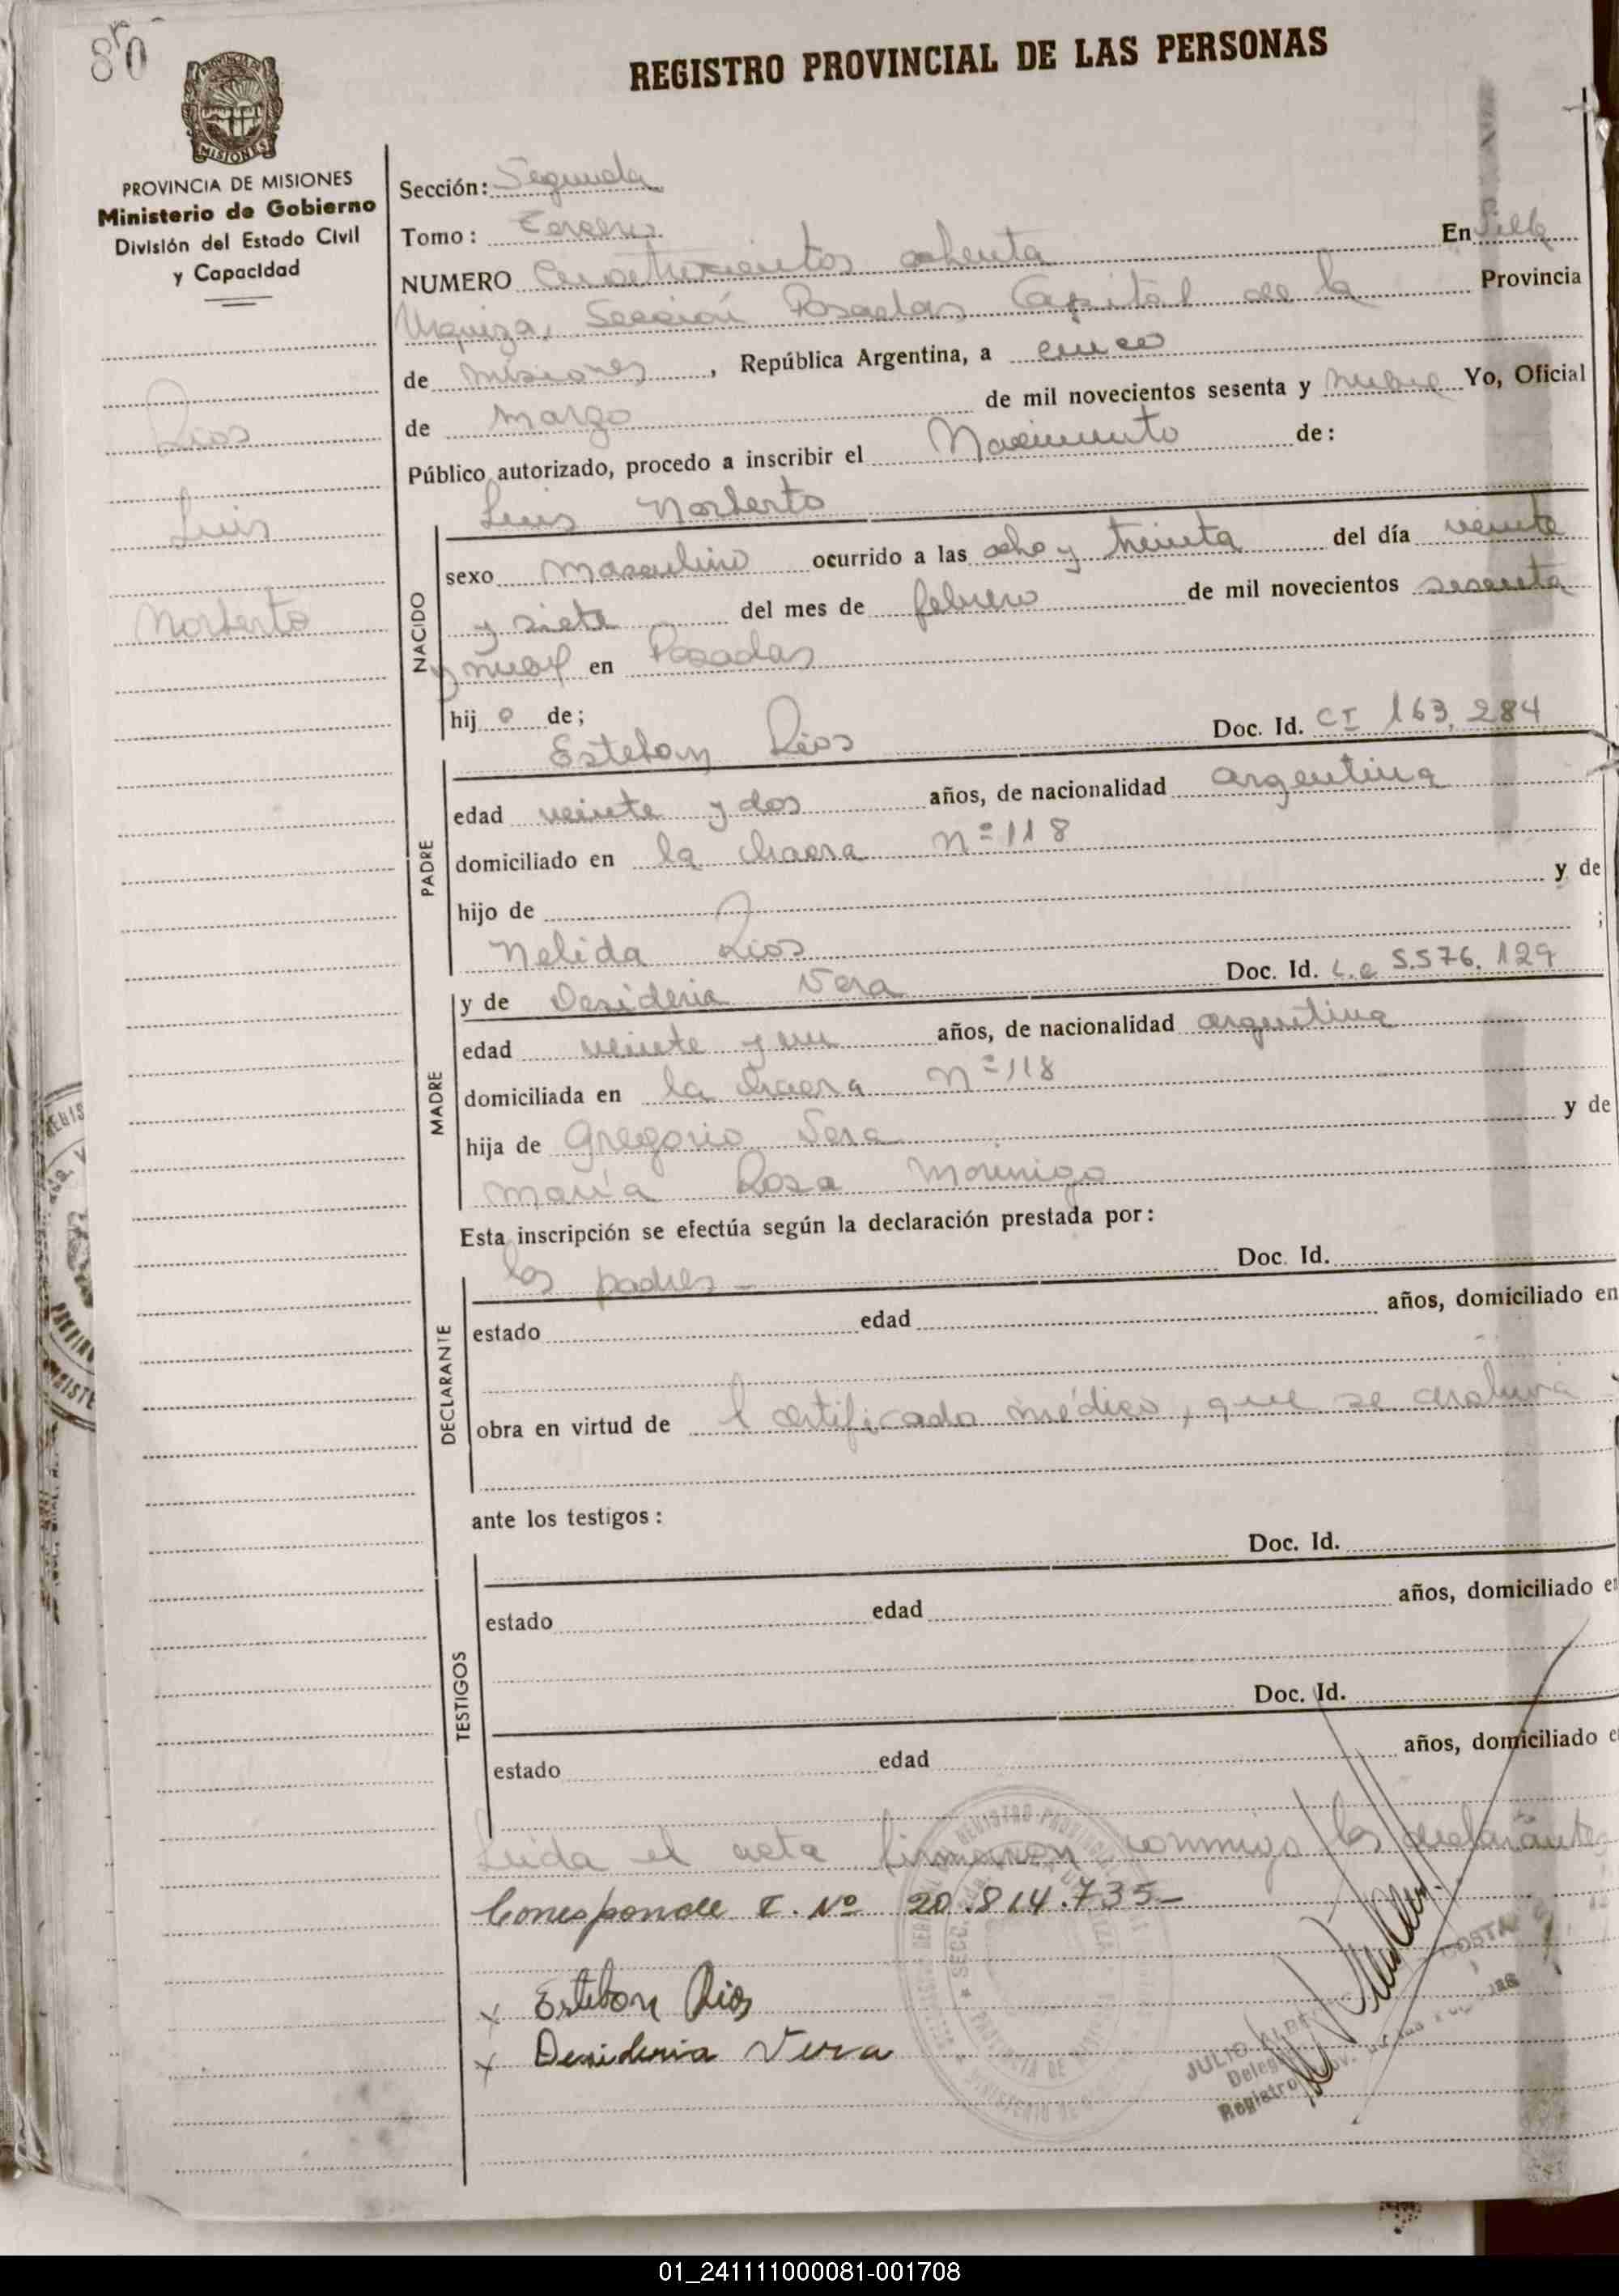 80
REGISTRO PROVINCIAL DE LAS PERSONAS
MISIONES
PROVINCIA DE MISIONES
Ministerio de Gobierno
División del Estado Civil
y Capacidad
Rios
Luis
Norberto
Sección: Segunda
Tomo: Tercero
NUMERO Cuatrocientos ochenta En Villa
Urquiza, Sección Posadas Capital de la Provincia
de Misiones, República Argentina, a cinco
de Marzo de mil novecientos sesenta y nueve Yo, Oficial
Público autorizado, procedo a inscribir el Nacimiento de:
Luis Norberto
NACIDO
sexo Masculino ocurrido a las ocho y treinta del día veinte
y siete del mes de febrero de mil novecientos sesenta
y nueve en Posadas
hijo de;
Esteban Rios Doc. Id. CI 163.284
PADRE
edad veinte y dos años, de nacionalidad argentina
domiciliado en la chacra nº 118
hijo de y de
Nelida Rios ;
y de Desideria Vera Doc. Id. L.C 5.576.129
MADRE
edad veinte y un años, de nacionalidad argentina
domiciliada en la chacra nº 118
hija de Gregorio Vera y de
María Rosa Morinigo
Esta inscripción se efectúa según la declaración prestada por:
los padres - Doc. Id.
DECLARANTE
estado edad años, domiciliado en
obra en virtud de l certificado médico, que se archiva
ante los testigos:
Doc. Id.
TESTIGOS
estado edad años, domiciliado e
Doc. Id.
estado edad años, domiciliado e
Leida el acta firmaron conmigo los declarantes
Corresponde I. Nº 20.814.735-
x Esteban Rios
x Desideria Vera
JULIO
Registro
01_241111000081-001708